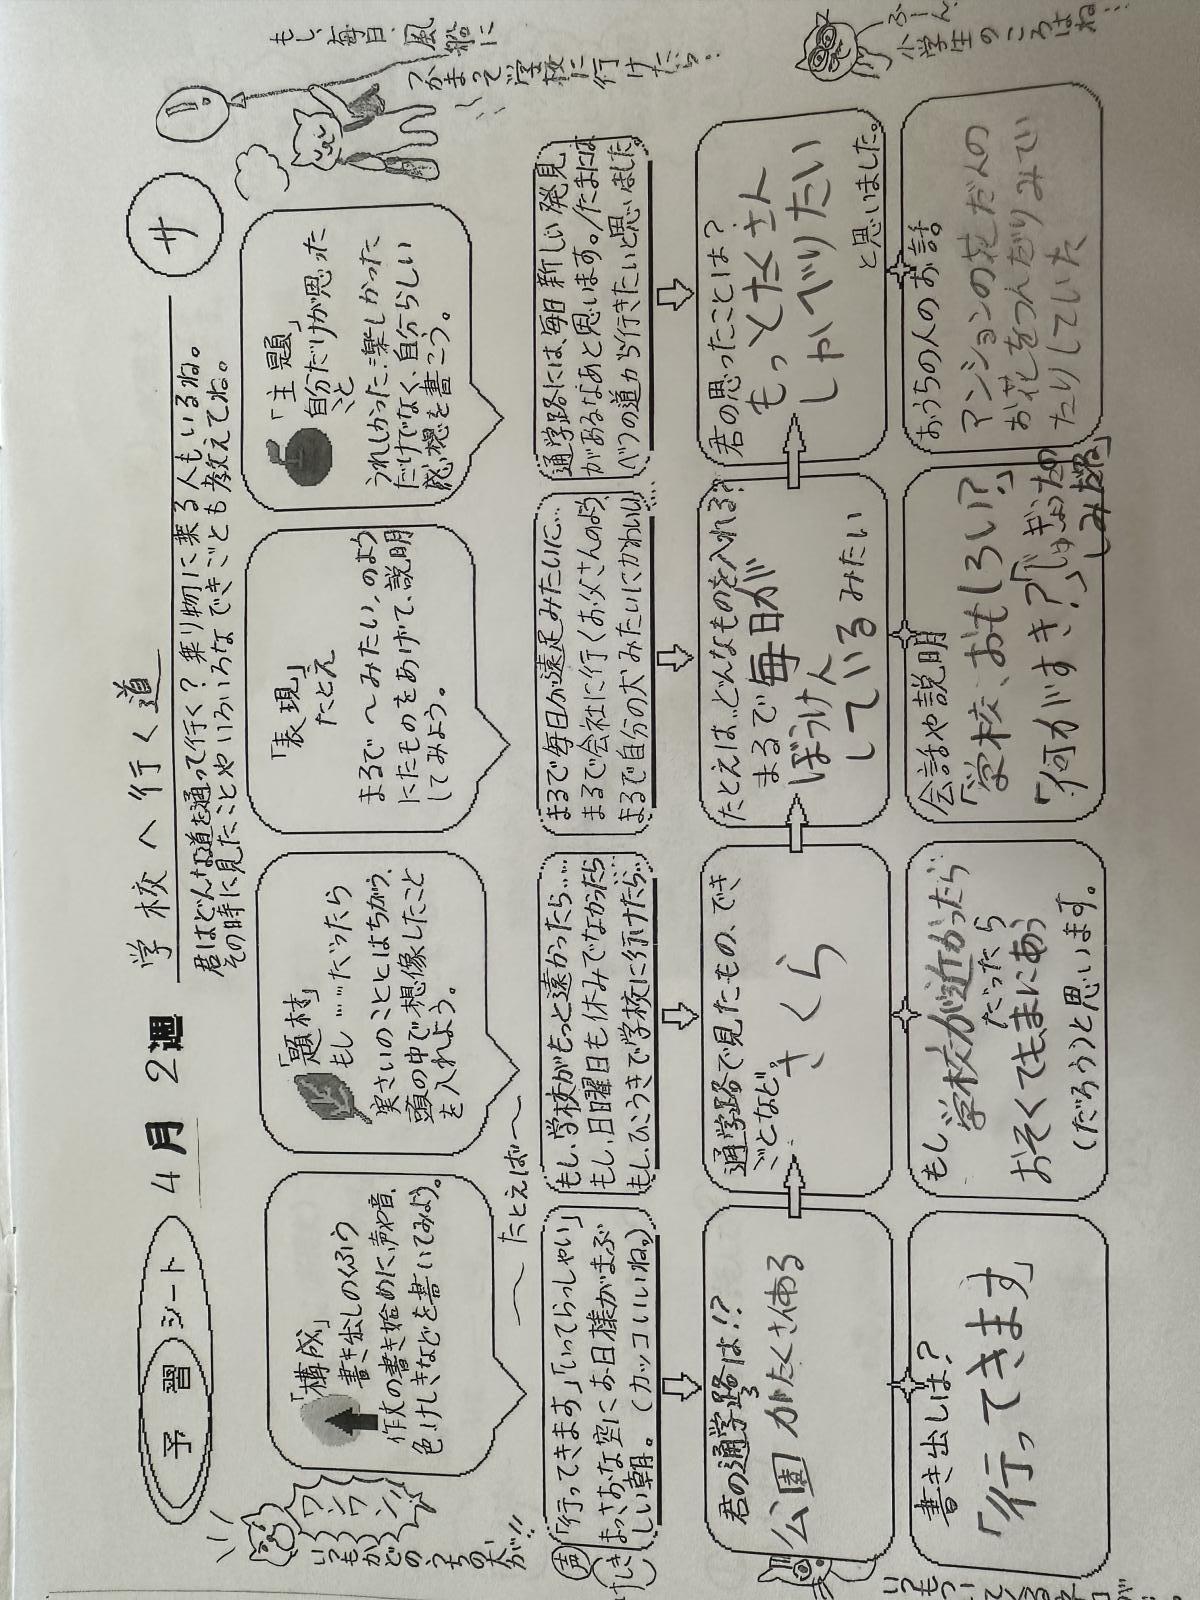 予習シート 4月2週 学校へ行く道 サ
君はどんな道を通って行く？乗り物に乗る人もいるね。
その時に見たことやいろいろなできごとも教えてね。
もし、毎日、風船に
つかまって学校に行けたら…
ワンワンッ
いつもかどのうちの犬が!!
「構成」
書き出しのくふう
作文の書き始めに、声や音、
色、けしきなどを書いてみよう。
「題材」
もし……だったら
実さいのこととはちがう、
頭の中で想像したこと
を入れよう。
「表現」
たとえ
まるで〜みたい、のよう
にたものをあげて、説明
してみよう。
「主題」
自分だけが思った
こと
うれしかった、楽しかった
だけでなく、自分らしい
感想を書こう。
〜たとえば〜
声
けしき
「行ってきます」「いってらっしゃい」
まっさおな空にお日様がまぶ
しい朝。（カッコいいねっ）
もし、学校がもっと遠かったら……
もし、日曜日も休みでなかったら
もし、ひこうきで学校に行けたら…
まるで毎日が遠足みたいに…
まるで会社に行くお父さんのよう
まるで自分の犬みたいにかわいい…
通学路には、毎日新しい発見
があるなあと思います。/たまには
べつの道から行きたいと思いました
君の通学路は!?
公園がたくさんある
通学路で見たもの、でき
ごとなど。
さくら
たとえは…どんなものを入れる?
まるで毎日が
ぼうけん
しているみたい
君の思ったことは？
もっとたくさん
しゃべりたい
と思いました。
書き出しは？
「行ってきます」
もし
学校が近かったら
だったら
おそくても、まにあう
（だろう）と思います。
会話や説明
「学校、おもしろい？」
「何がすき？」「じゅぎょうの
しみだね」
おうちの人のお話
マンションの花だんの
お花をつんだりみてい
たりしていた
ふーん
小学生のころはね…